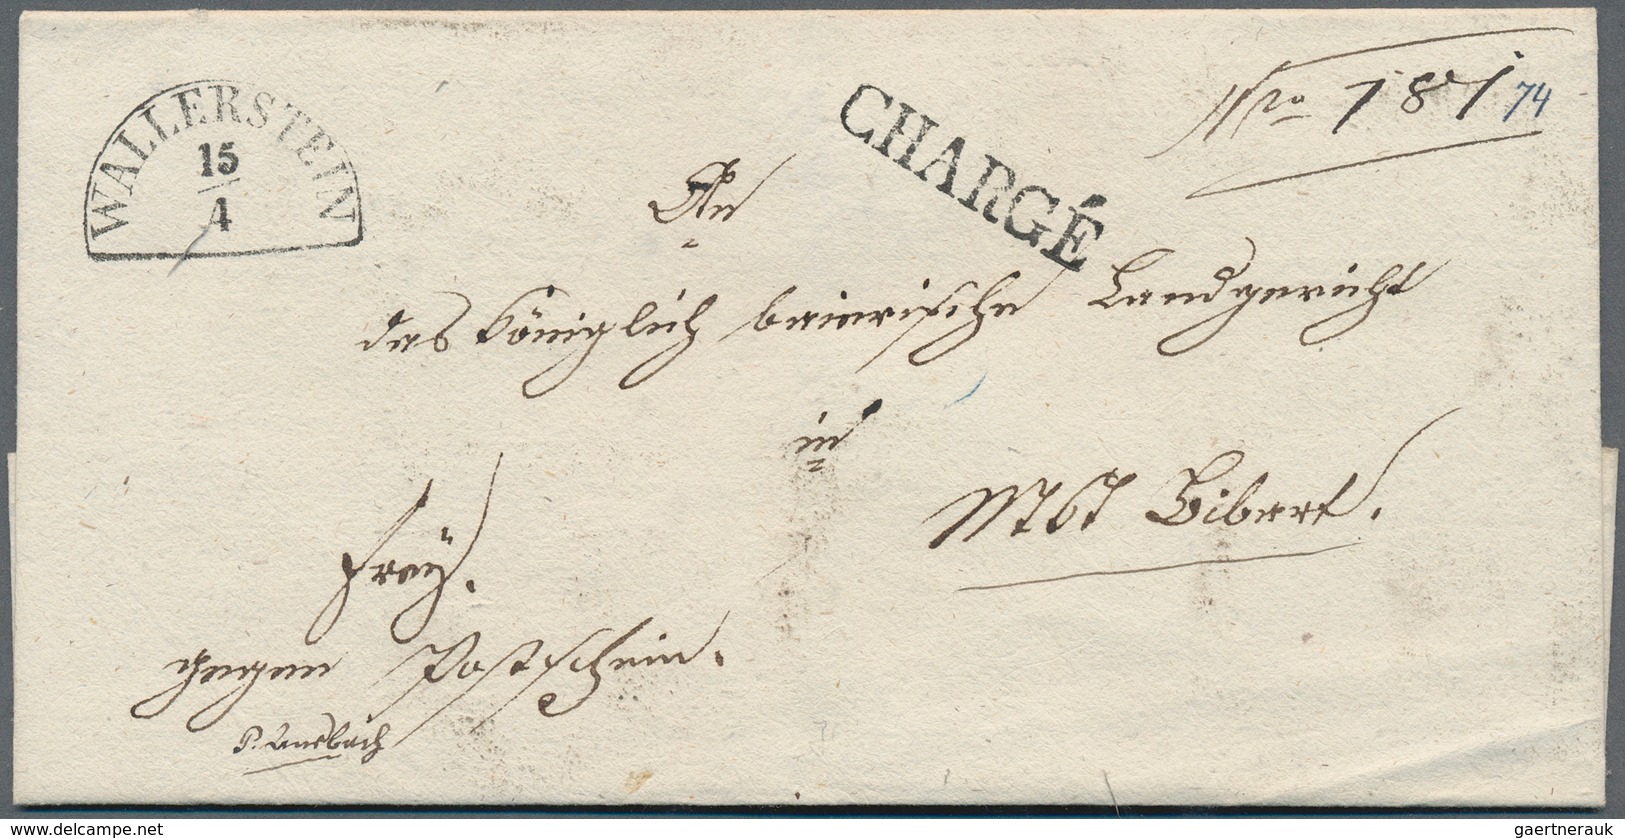 WALLERSTEIN
15
4
CHARGÉ
No 787
74
An
das königlich baierische Landgericht
in
Mkt Bibart.
frey.
gegen Postschein.
p. Ansbach
www.delcampe.net
gaertnerauk